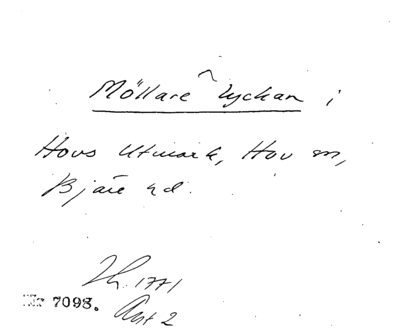 Möllare ^ lyckan i
Hovs Utmark, Hov sn,
Bjäre hd.
Lh. 1771
Nr 7098.
Akt 2